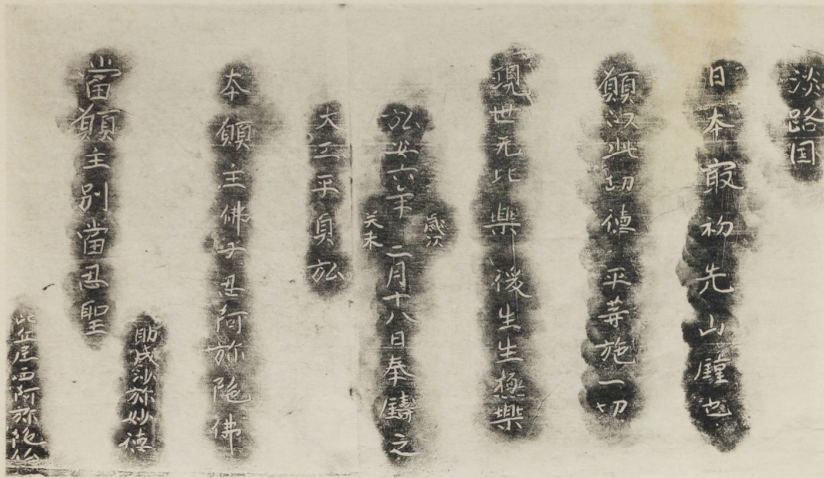 淡路国
日本最初先山鐘也
願以此功德平等施一切
現世无比樂後生生極樂
弘安六年歳次癸未二月十八日奉鑄之
大工平貞弘
本願主佛子忍阿弥陁佛
助成沙弥妙德
當願主別當忍聖
比丘尼西阿弥陁